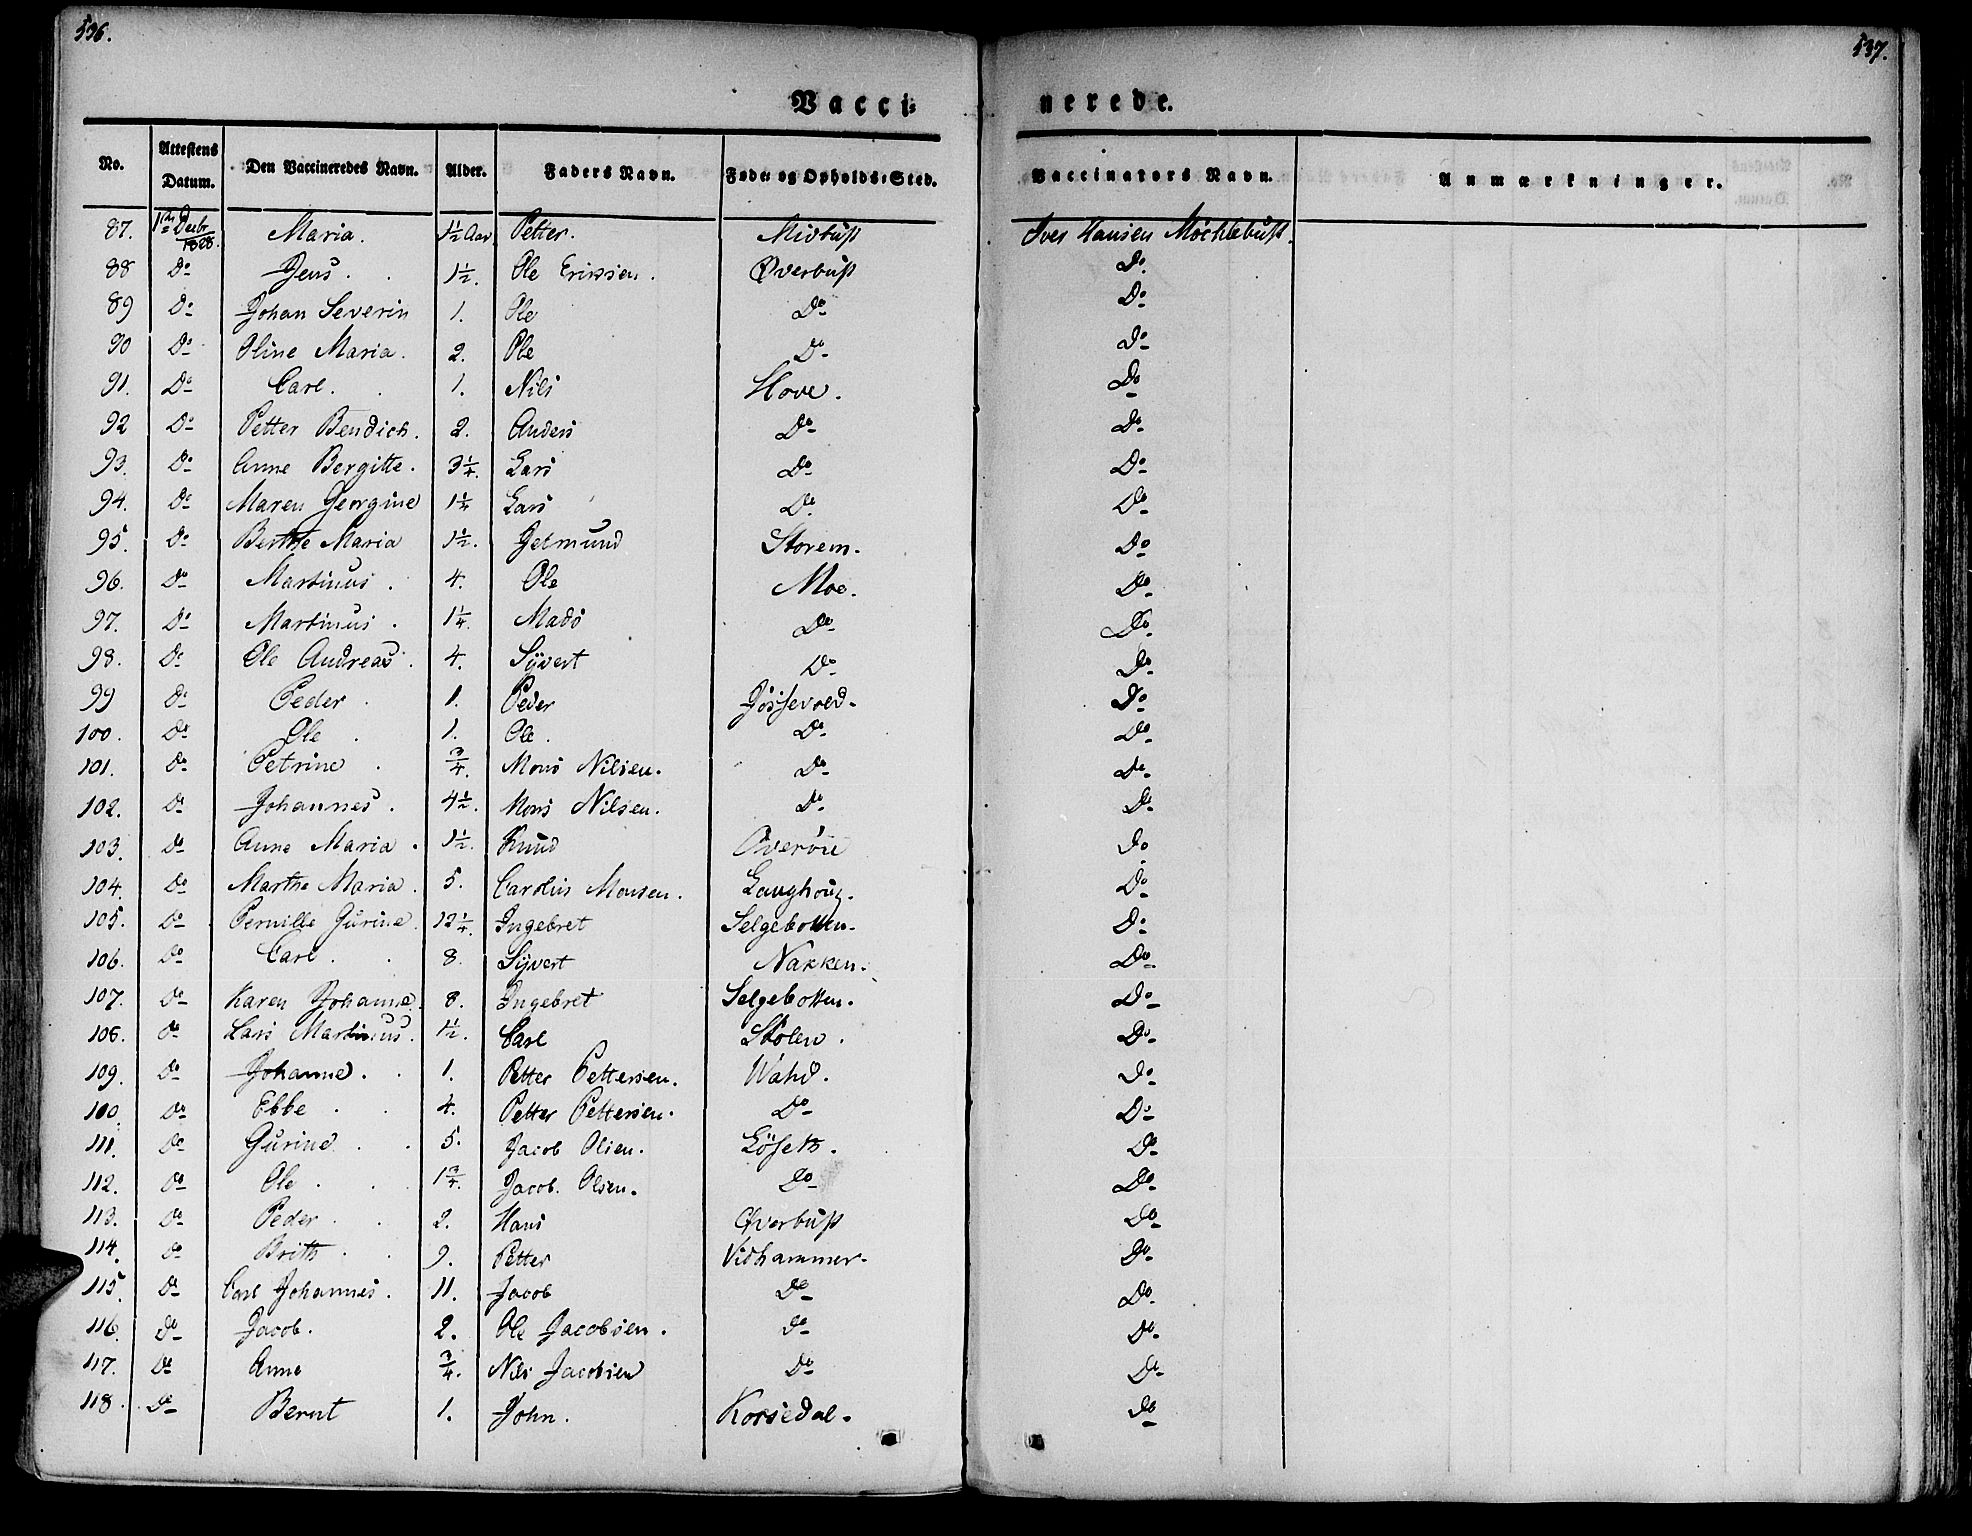 536.
537.
Vacci-
nerede.
No. Attestens Datum. Den Vaccineredes Navn. Alder. Faders Navn. Føde- og Opholds-Sted. Vaccinators Navn. Anmærkninger.
87. 1ste Decbr 1828. Maria. 1½ Aar Petter. Midbust Iver Hansen Mochlebust.
88 Do Jens. 1½. Ole Erikssen. Øverbust Do.
89 Do Johan Severin 1. Ole Do Do
90 Do Oline Maria. 2. Ole Do Do
91. Do Carl. 1. Nils Hove. Do
92 Do Petter Bendich. 2. Anders Do Do
93. Do Anne Bergitte. 3¼. Lars Do Do
94. Do Maren Georgine 1¼ Lars Do. Do
95. Do Berthe Maria 1½. Gelmund Storem. Do
96. Do Martinus. 4. Ole Moe. Do
97. Do Martinus. 1¼. Mads Do Do
98. Do Ole Andreas. 4. Sÿvert Do Do
99 Do Peder. 1. Peder Gjösevold. Do
100. Do Ole. 1. Ole. Do Do
101. Do Petrine. ¾. Mons Nilsen. Do Do
102. Do Johannes. 4½. Mons Nilsen. Do Do
103. Do Anne Maria. 1½. Knud Overöie Do
104. Do Marthe Maria. 5. Carolus Monsen. Langhoug. Do
105. Do Pernille Gurine. 12¼. Ingebret Selgebotten. Do
106. Do Carl. 8. Sÿvert Nakken. Do
107. Do Karen Johanne. 8. Ingebret Selgebotten. Do
108. Do Lars Martinus. 1½. Carl Stolen. Do
109. Do Johanne. 1. Petter Pettersen. Wahd. Do
100. Do Ebbe. 4. Petter Pettersen. Do Do
111. Do Gurine. 5. Jacob Olsen. Lösetb. Do
112. Do Ole. 1¾. Jacob. Olsen. Do Do
113. Do Peder. 2. Hans Øverbust Do
114. Do Brith. 9. Petter Vidhammer. Do
115. Do Carl Johannes. 11. Jacob Do Do
116. Do Jacob. 2. Ole Jacobsen. Do Do
117. Do Anne ¾. Nils Jacobsen Do Do
118. Do Bernt 1. John. Korsedal. Do